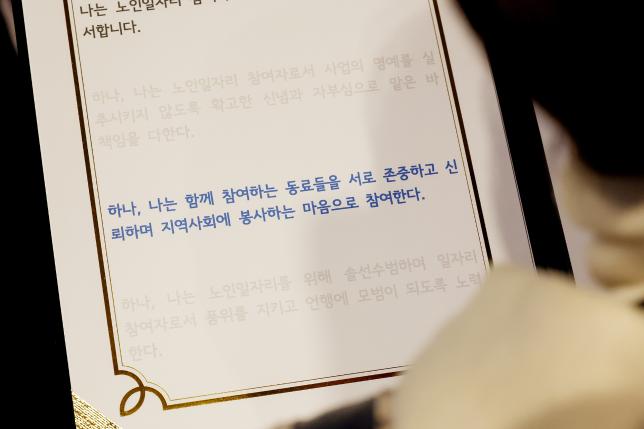 나는 노인일자리
서합니다.
하나, 나는 노인일자리 참여자로서 사업의 명예를 실
추시키지 않도록 확고한 신념과 자부심으로 맡은 바
책임을 다한다.
하나, 나는 함께 참여하는 동료들을 서로 존중하고 신
뢰하며 지역사회에 봉사하는 마음으로 참여한다.
하나, 나는 노인일자리를 위해 솔선수범하여 일자리
참여자로서 품위를 지키고 언행에 모범이 되도록 노력
한다.